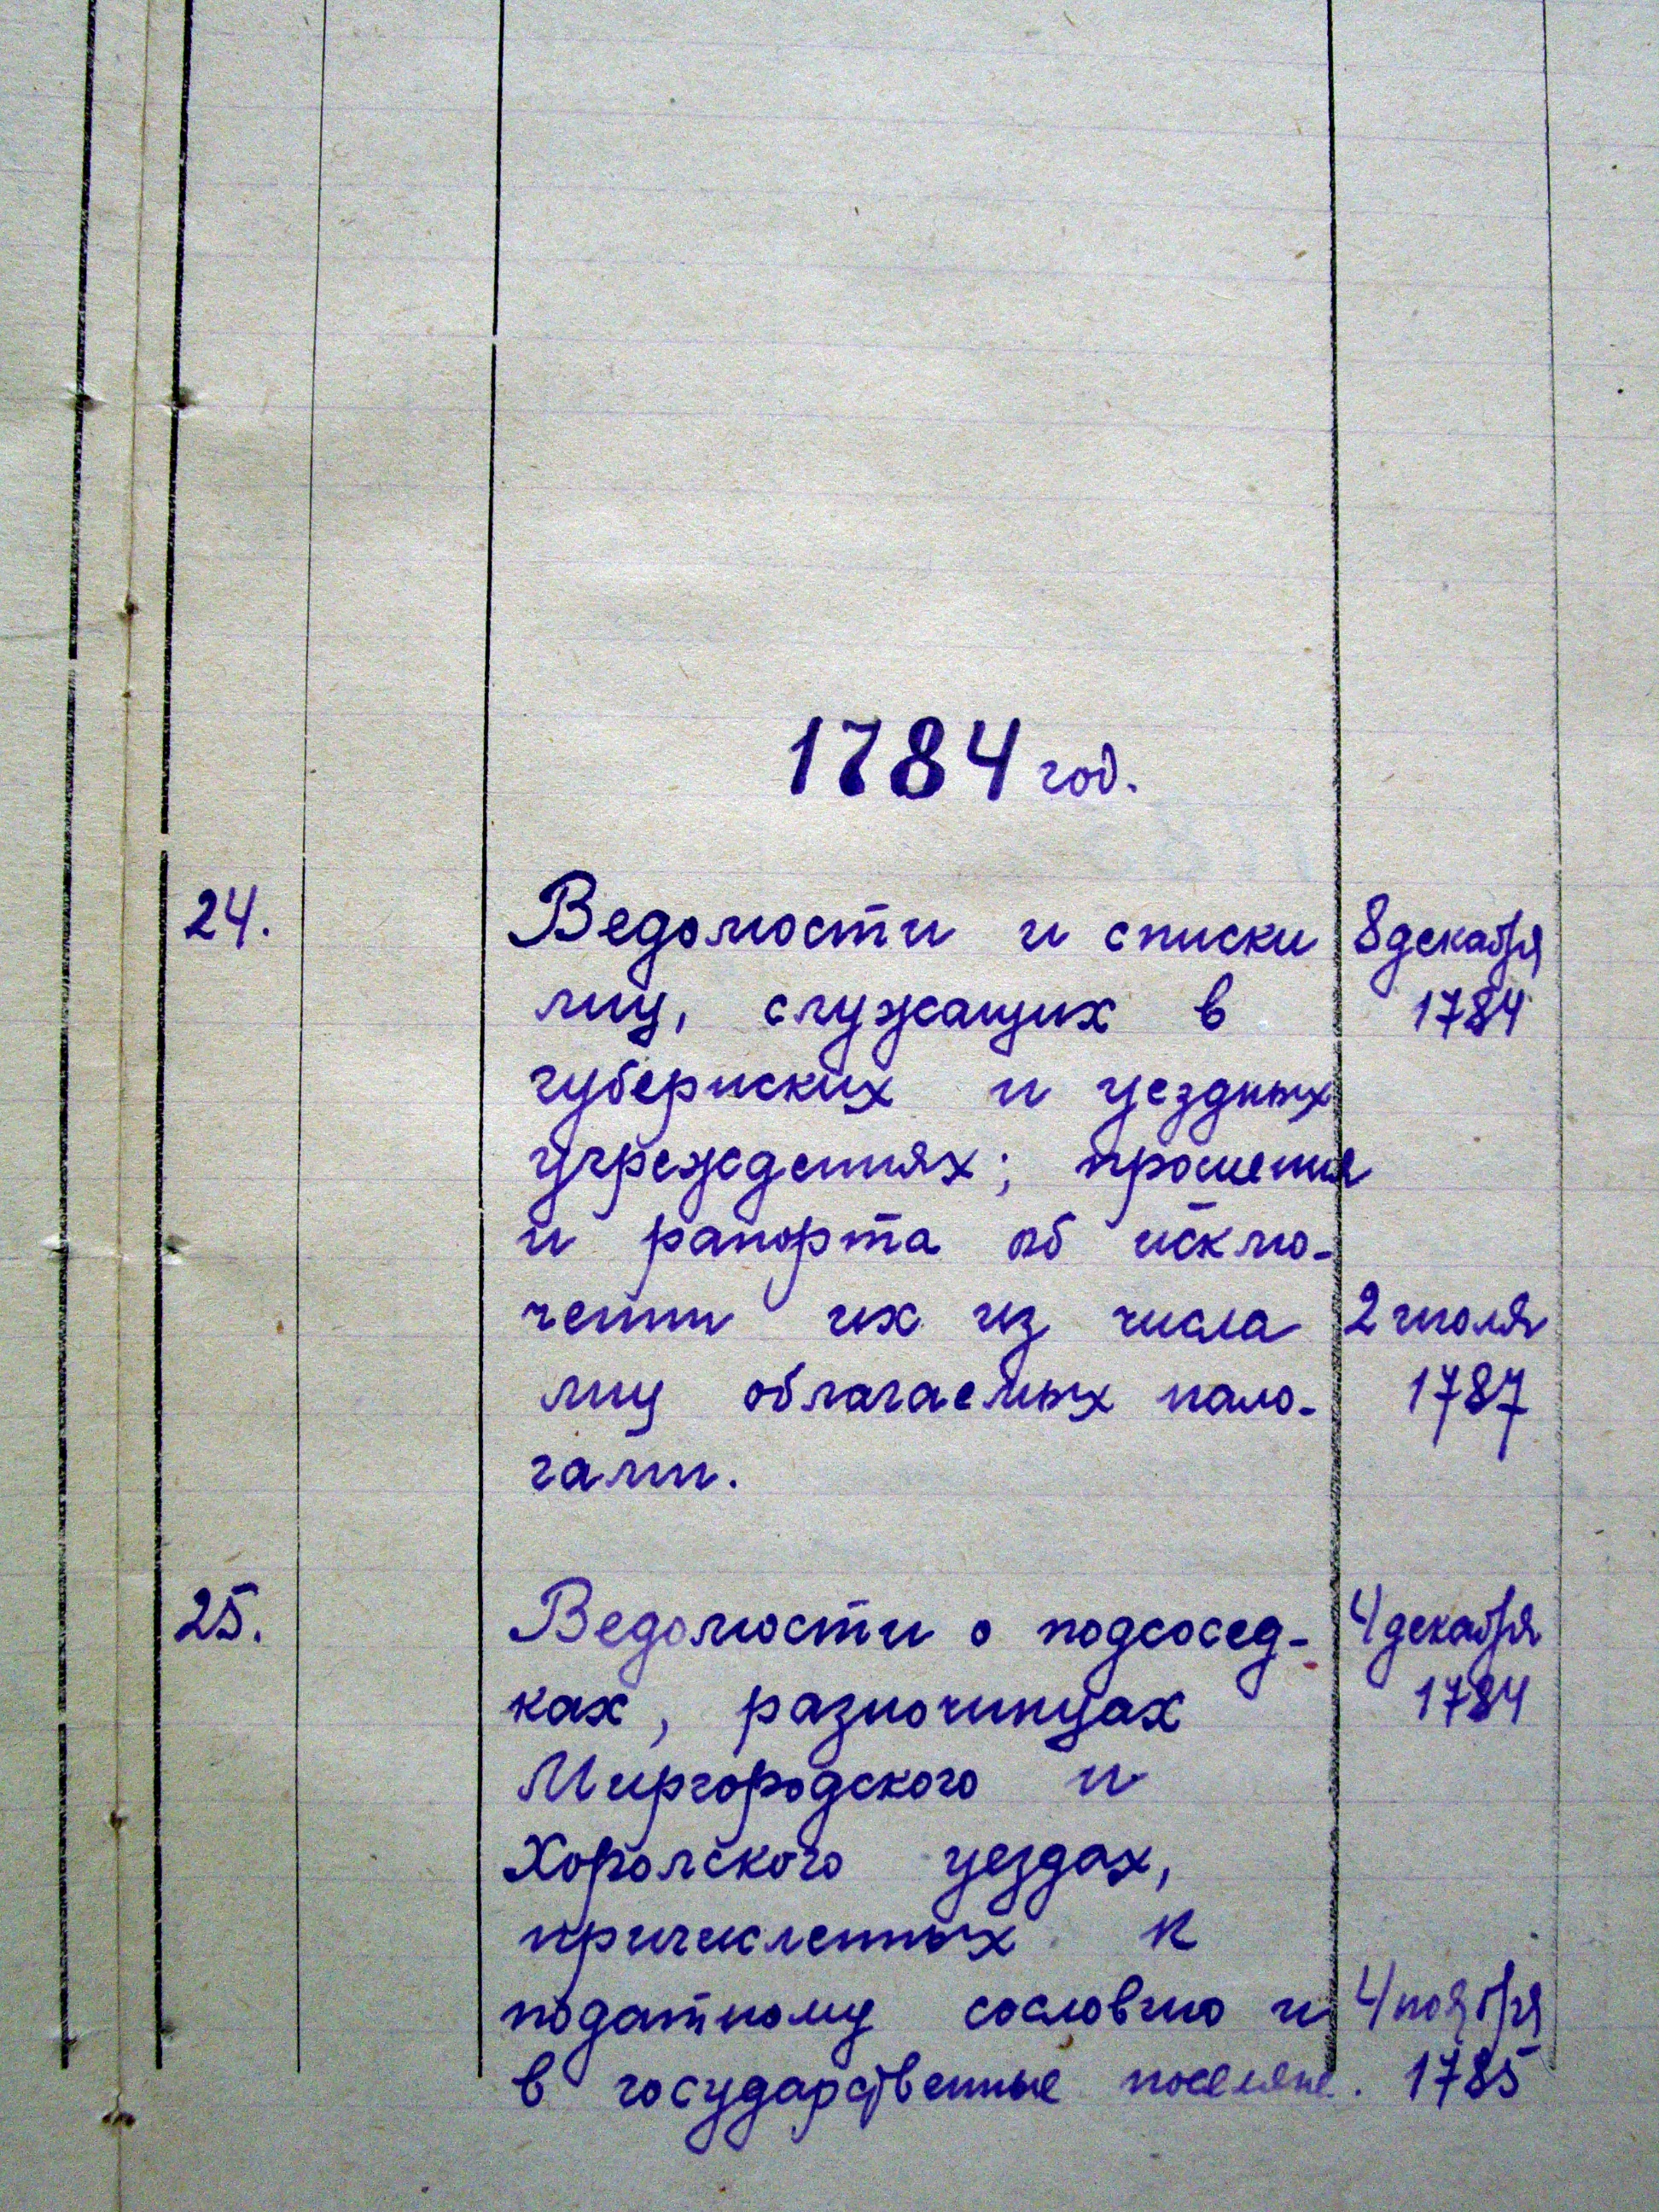 1784 год.
24. Ведомости и списки 8 декабря
лиц, служащих в 1784
губернских и уездных
учреждениях; прошения
и рапорта об исклю-
чении их из числа 2 июля
лиц облагаемых нало- 1787
гами.
25. Ведомости о подсосед- 4 декабря
ках, разночинцах 1784
Миргородского и
Хорольского уездах,
причисленных к
податному сословию и 4 ноября
в государственные поселяне. 1785